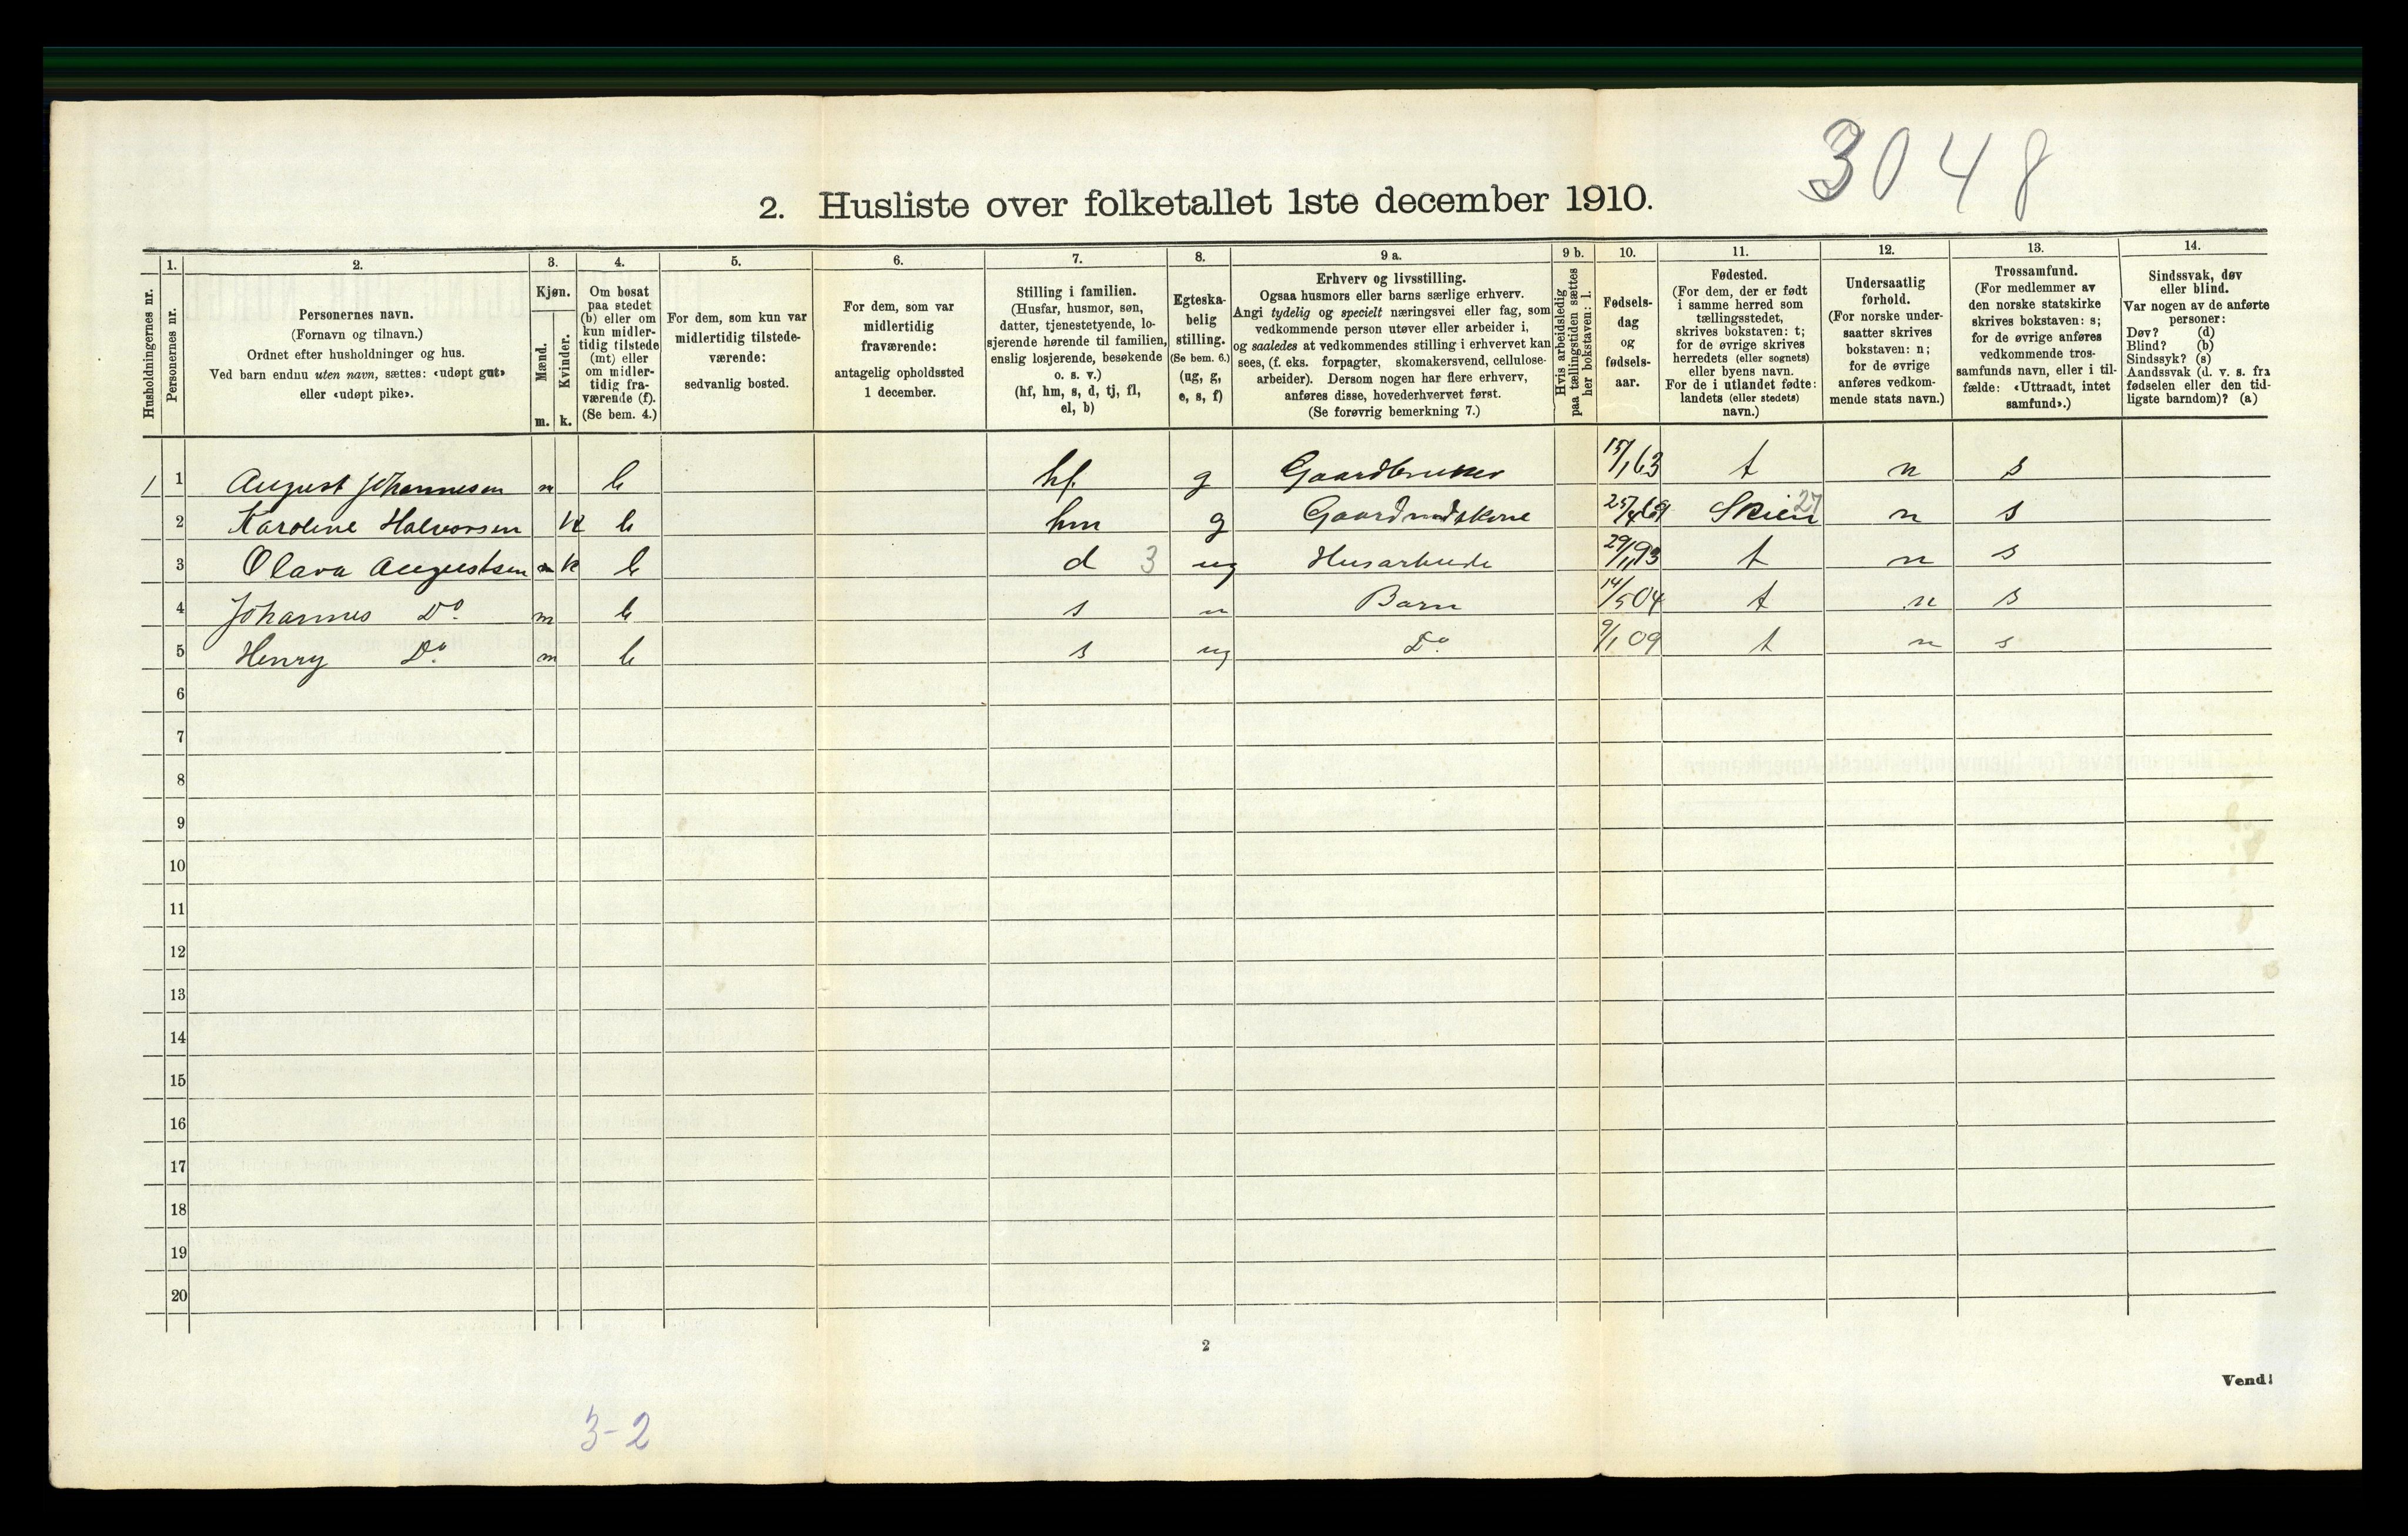 3048
2. Husliste over folketallet 1ste december 1910.
Husholdningernes nr.
1.
Personernes nr.
2.
Personernes navn.
(Fornavn og tilnavn.)
Ordnet efter husholdninger og hus.
Ved barn endnu uten navn, sættes: «udøpt gut»
eller «udøpt pike».
3.
Kjøn.
Mænd.
Kvinder.
m. k.
4.
Om bosat
paa stedet
(b) eller om
kun midler-
tidig tilstede
(mt) eller
om midler-
tidig fra-
værende (f).
(Se bem. 4.)
5.
For dem, som kun var
midlertidig tilstede-
værende:
sedvanlig bosted.
6.
For dem, som var
midlertidig
fraværende:
antagelig opholdssted
1 december.
7.
Stilling i familien.
(Husfar, husmor, søn,
datter, tjenestetyende, lo-
sjerende hørende til familien,
enslig losjerende, besøkende
o. s. v.)
(hf, hm, s, d, tj, fl,
el, b)
8.
Egteska-
belig
stilling.
(Se bem. 6.)
(ug, g,
e, s, f)
9 a.
Erhverv og livsstilling.
Ogsaa husmors eller barns særlige erhverv.
Angi tydelig og specielt næringsvei eller fag, som
vedkommende person utøver eller arbeider i,
og saaledes at vedkommendes stilling i erhvervet kan
sees, (f. eks. forpagter, skomakersvend, cellulose-
arbeider). Dersom nogen har flere erhverv,
anføres disse, hovederhvervet først.
(Se forøvrig bemerkning 7.)
9 b.
Hvis arbeidsledig
paa tællingstiden sættes
her bokstaven: l.
10.
Fødsels-
dag
og
fødsels-
aar.
11.
Fødested.
(For dem, der er født
i samme herred som
tællingsstedet,
skrives bokstaven: t;
for de øvrige skrives
herredets (eller sognets)
eller byens navn.
For de i utlandet fødte:
landets (eller stedets)
navn.)
12.
Undersaatlig
forhold.
(For norske under-
saatter skrives
bokstaven: n;
for de øvrige
anføres vedkom-
mende stats navn.)
13.
Trossamfund.
(For medlemmer av
den norske statskirke
skrives bokstaven: s;
for de øvrige anføres
vedkommende tros-
samfunds navn, eller i til-
fælde: «Uttraadt, intet
samfund».)
14.
Sindssvak, døv
eller blind.
Var nogen av de anførte
personer:
Døv? (d)
Blind? (b)
Sindssyk? (s)
Aandssvak (d. v. s. fra
fødselen eller den tid-
ligste barndom)? (a)
1 1 August Johannesen m b hf g Gaardbruker 15/1 63 t n s
2 Karoline Halvorsen k b hm g 25/4 69 Skien 27 n s
3 Olava Augustsen k b d 3 ug Husarbeide 29/11 93 t n s
4 Johannes Do m b s u Barn 14/5 04 t n s
5 Henry Do m b s ug Do 9/1 09 t n s
6
7
8
9
10
11
12
13
14
15
16
17
18
19
20
2
Vend!
3-2